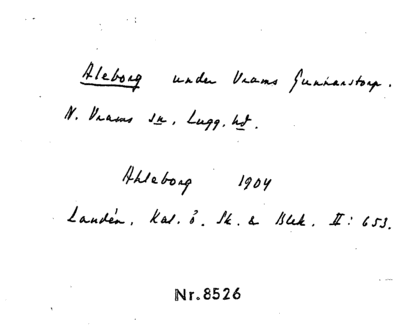 Aleborg under Vrams Gunnarstorp.
N. Vrams sn, Lugg. hd.
Ahleborg 1904
Landén, Kal. ö. Sk. & Blek. II: 653.
Nr. 8526